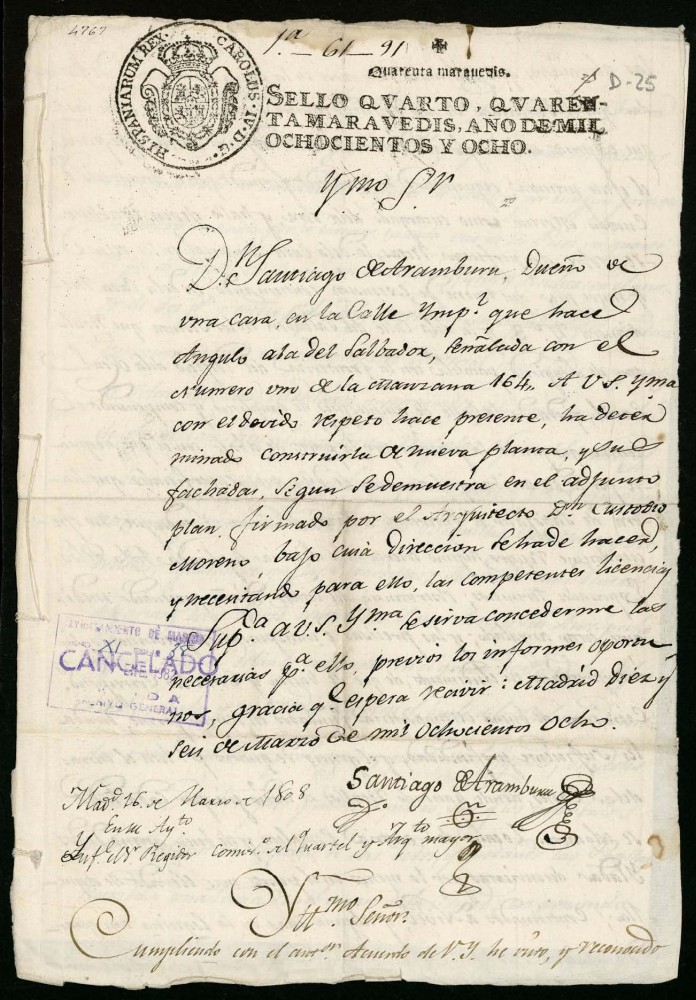 4767
1ª 61-91
D-25
CAROLUS · IV · D · G · HISPANIARUM REX ·
Quarenta maravedis.
SELLO QVARTO, QVAREN-
TA MARAVEDIS, AÑO DE MIL
OCHOCIENTOS Y OCHO.
Ymo Sr
Dn. Santiago de Aramburu, Dueño de
una Casa, en la Calle Ymp.l que hace
Angulo ala del Salbador, señalada con el
Numero uno de la Manzana 164,, A V.S. Yma
con el devido respeto hace presente, ha deter
minado construirla de nueva planta, y sus
fachadas, segun se demuestra en el adjunto
plan, firmado por el Arquitecto Dn Custodio
Moreno, bajo cuia dirección se ha de hacer,
y necesitando para ello, las competentes licencias
Sup.ca a V.S. Yma se sirva concederme las
necesarias p.a ello, previos los informes oportu
nos, gracia q.e espera recivir: Madrid Diez y
seis de Marzo de mil Ochocientos Ocho.
Santiago de Aramburu
Mad.d 16. de Marzo de 1808
En su Ay.to
Ynf.e el Sr Regidor Comis.o del Quartel y Arq.to mayor
AYUNTAMIENTO DE MADRID
CANCELADO
ARCHIVO GENERAL
Yttmo Señor.
Cumpliendo con el antor Acuerdo de V.Y. he visto, y reconocido